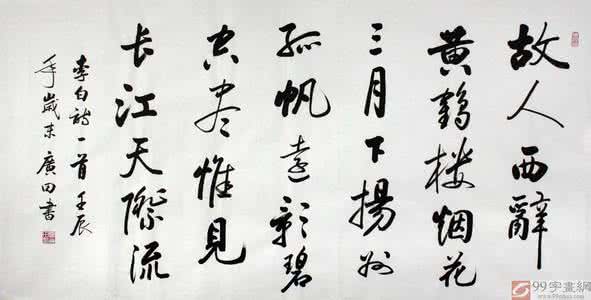 故人西辭
黄鹤楼烟花
三月下揚州
孤帆遠影碧
空尽惟見
长江天際流
李白詩一首 壬辰
年歲末廣田書
99字畫網